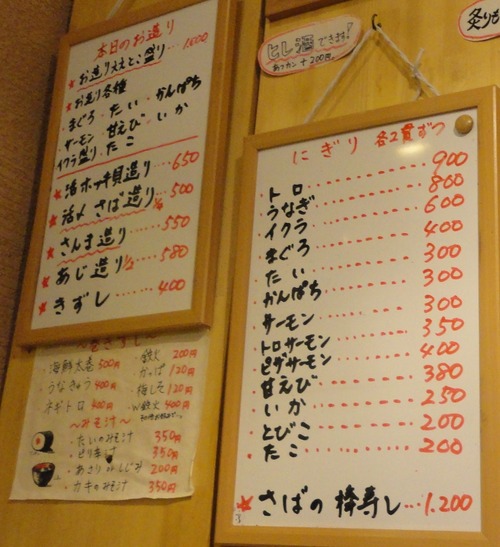 本日のお造り
★お造りええとこ盛り…1,600
★お造り各種
・まぐろ・たい・かんぱち
・サーモン・甘えび・いか
・イクラ盛り・たこ
★活ホッキ貝造り…650
★活〆さば造り1/2…500
★さんま造り……550
★あじ造り1/2…580
★きずし……400
海鮮太巻 500円
・うなきゅう 400円
ネギトロ 400円
・鉄火 200円
・かっぱ 120円
・梅しそ 120円
・W鉄火 400円
～みそ汁～
・たいのみそ汁 350円
・ピリ辛汁 350円
・あさり orしじみ 200円
・カキのみそ汁 350円
ヒレ酒できます!
あつカン+200円
炙りも
にぎり 各2貫ずつ
トロ……900
うなぎ……800
イクラ……600
まぐろ……400
たい……300
かんぱち……300
サーモン……300
トロサーモン……350
ピザサーモン……400
甘えび……380
いか……250
とびこ……200
たこ……200
★さばの棒寿し…1,200